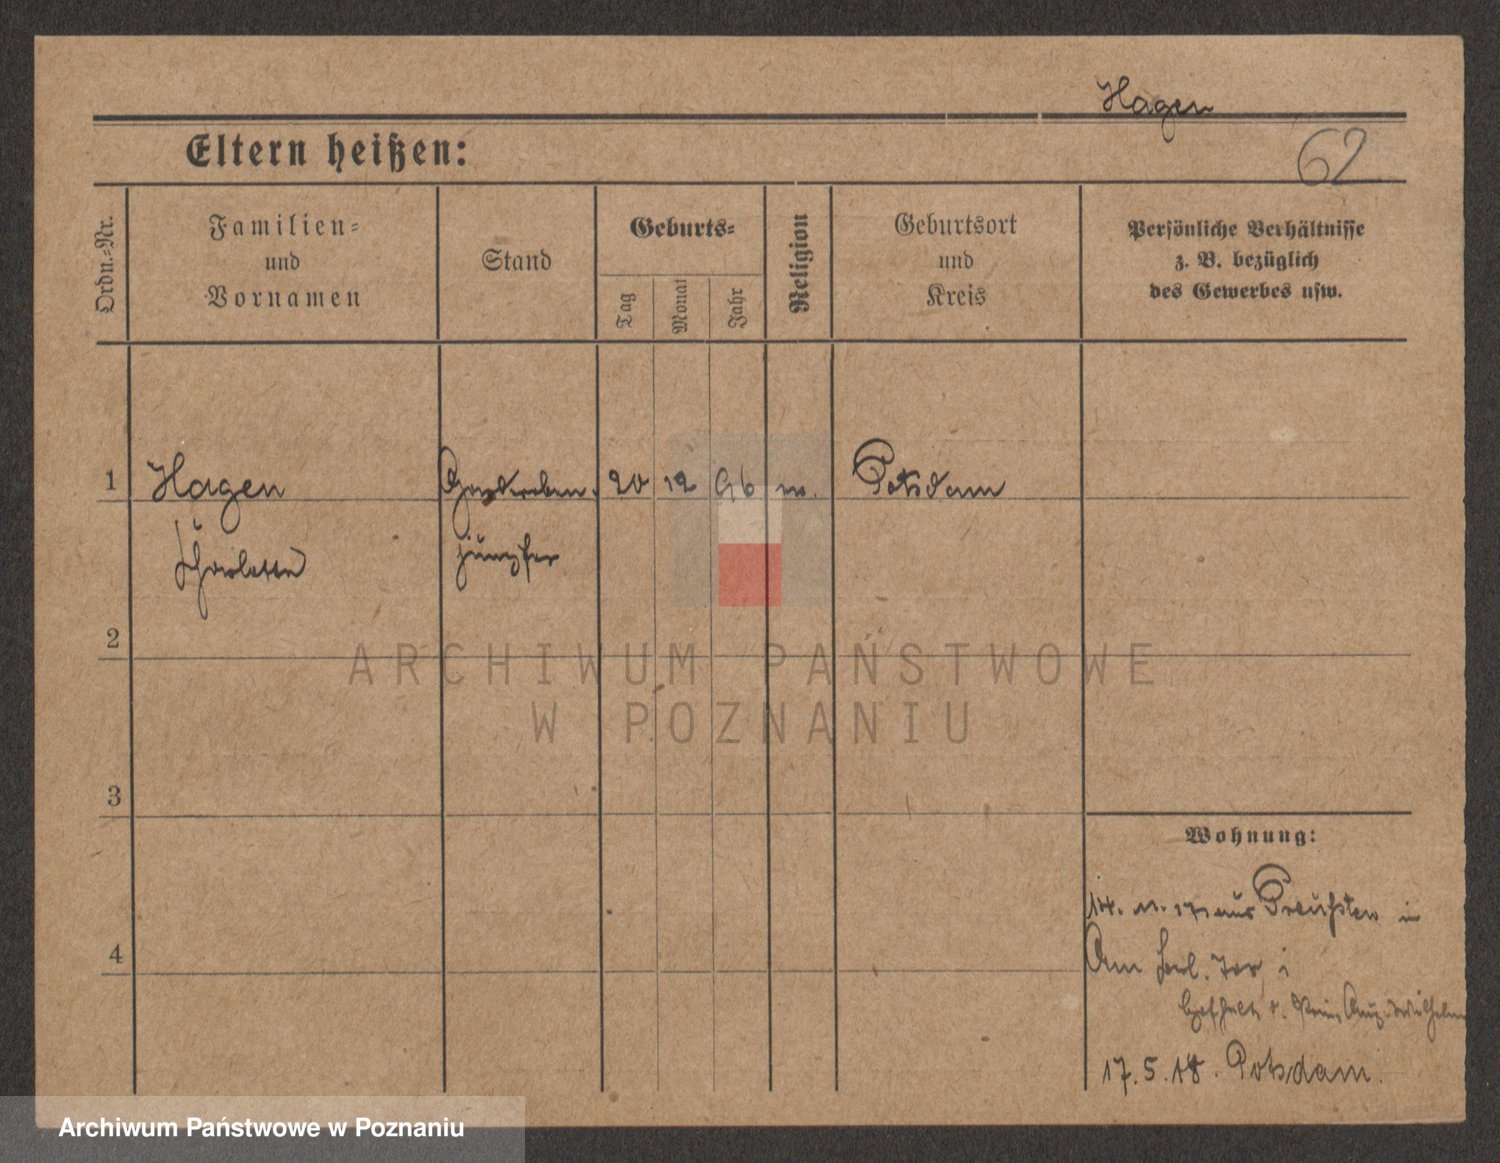 Hagen
62
Eltern heißen:
Ordn.-Nr.
Familien-
und
Vornamen
Stand
Geburts-
Tag
Monat
Jahr
Religion
Geburtsort
und
Kreis
Persönliche Verhältnisse
z. B. bezüglich
des Gewerbes usw.
1
Hagen
Charlotte
Garderoben-
jungfer
20
12
96
Potsdam
2
3
4
Wohnung:
aus Preußen in
Am Berl. Tor
Wilhelm
17.5.18. Potsdam.
ARCHIWUM PAŃSTWOWE
W POZNANIU
Archiwum Państwowe w Poznaniu